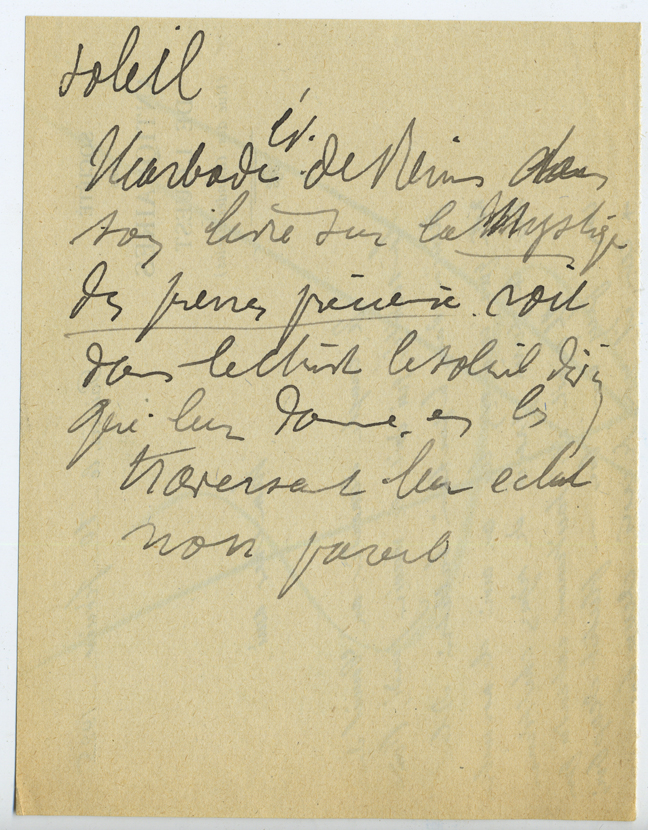 soleil
év.
Marbode de Reims dans
son livre sur la Mystique
des pierres précieuses voit
dans le Christ le soleil divin
qui leur donne en les
traversant leur eclat
non pareil